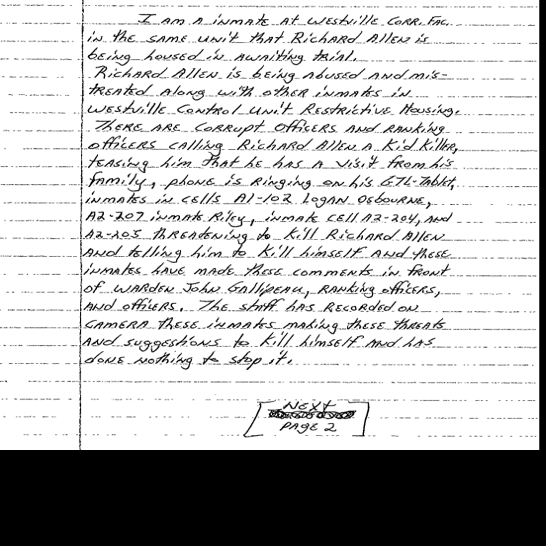 I AM A INMATE AT WESTVILLE CORR. FAC.
IN THE SAME UNIT THAT RICHARD ALLEN IS
BEING HOUSED IN AWAITING TRIAL.
RICHARD ALLEN IS BEING ABUSED AND MIS-
TREATED ALONG WITH OTHER INMATES IN
WESTVILLE CONTROL UNIT RESTRICTIVE HOUSING.
THERE ARE CORRUPT OFFICERS AND RANKING
OFFICERS CALLING RICHARD ALLEN A KID KILLER,
TEASING HIM THAT HE HAS A VISIT FROM HIS
FAMILY, PHONE IS RINGING ON HIS GTL-TABLET,
INMATES IN CELLS A1-102 LOGAN OSBOURNE,
A2-207 INMATE RILEY, INMATE CELL A2-204, AND
A2-205 THREATENING TO KILL RICHARD ALLEN
AND TELLING HIM TO KILL HIMSELF AND THESE
INMATES HAVE MADE THESE COMMENTS IN FRONT
OF WARDEN JOHN GALLIPEAU, RANKING OFFICERS,
AND OFFICERS. THE STAFF HAS RECORDED ON
CAMERA THESE INMATES MAKING THESE THREATS
AND SUGGESTIONS TO KILL HIMSELF AND HAS
DONE NOTHING TO STOP IT.
NEXT
PAGE 2